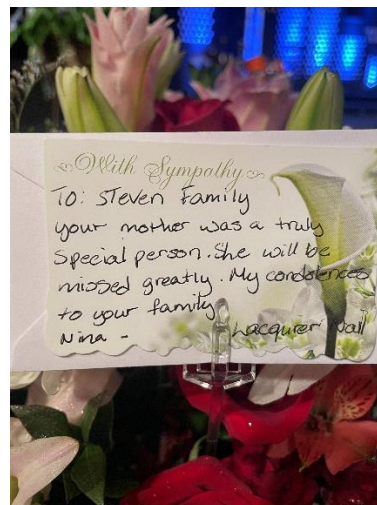 With Sympathy
To: Steven Family
your mother was a truly
special person. She will be
missed greatly. My condolences
to your family
Nina - Lacqurer Nail